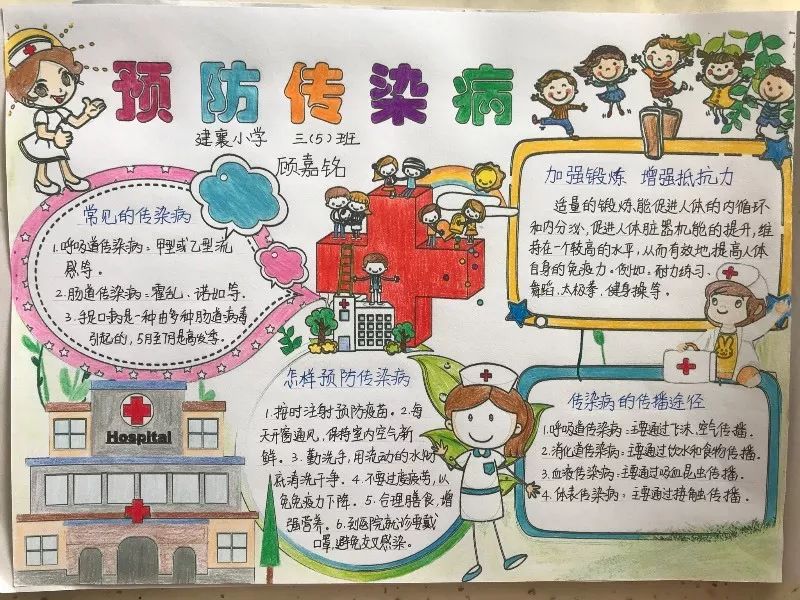 预防传染病
建襄小学 三(5)班
顾嘉铭
常见的传染病
1.呼吸道传染病：甲型或乙型流
感等。
2.肠道传染病：霍乱、诺如等.
3.手足口病是一种由多种肠道病毒
引起的，5月至7月是高发季.
加强锻炼 增强抵抗力
适量的锻炼,能促进人体的内循环
和内分泌,促进人体脏器机能的提升,维
持在一个较高的水平,从而有效地提高人体
自身的免疫力。例如：耐力练习、
舞蹈、太极拳、健身操等.
怎样预防传染病
1.按时注射预防疫苗.2.每
天开窗通风,保持室内空气新
鲜.3.勤洗手,用流动的水彻
底清洗干净.4.不要过度疲劳,以
免免疫力下降.5.合理膳食,增
强营养.6.到医院就诊要戴
口罩,避免交叉感染。
传染病的传播途径
1.呼吸道传染病：主要通过飞沫、空气传播.
2.消化道传染病：主要通过饮水和食物传播.
3.血液传染病：主要通过吸血昆虫传播.
4.体表传染病：主要通过接触传播.
Hospital